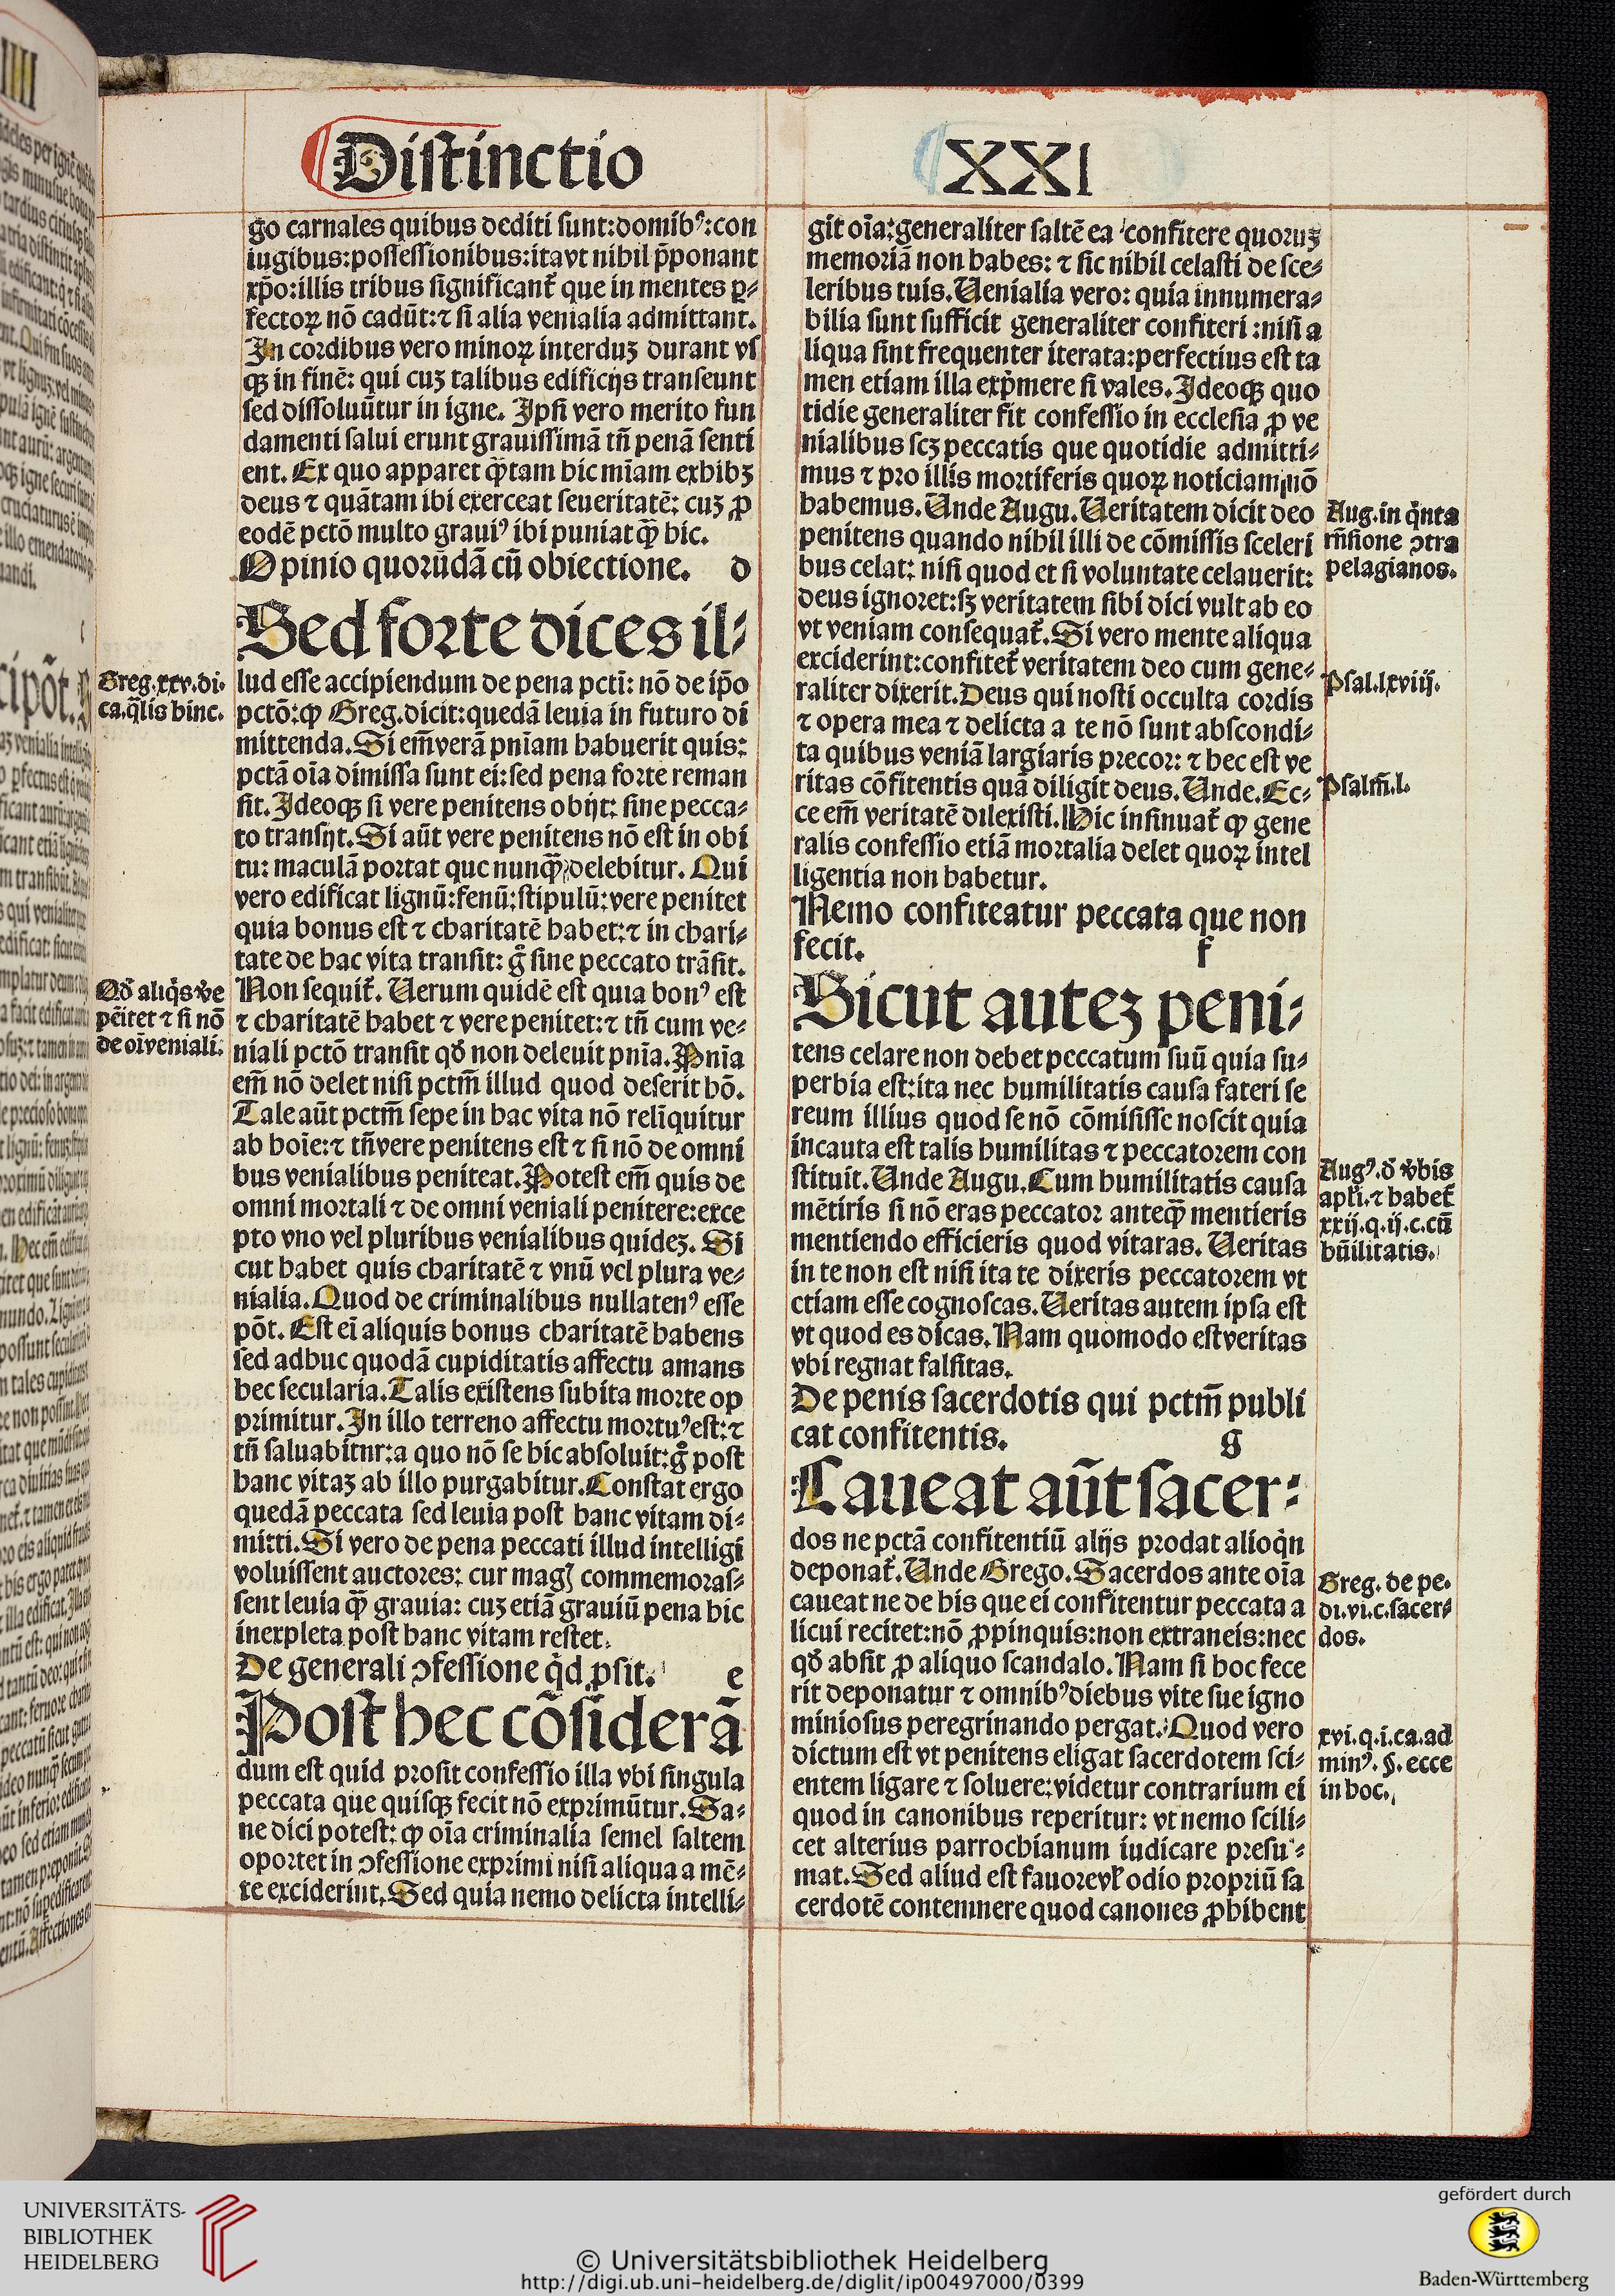 Distinctio XXI
go carnales quibus dediti sunt:domibꝰ:con
iugibus:possessionibus:itavt nihil p̄ponant
xp̄o:illis tribus significant᷑ que in mentes ꝑ⸗
fectoꝝ nō cadūt:⁊ si alia venialia admittant.
In cordibus vero minoꝝ interduꝫ durant vſ
qꝫ in finē: qui cuꝫ talibus edificijs transeunt
sed dissoluūtur in igne. Ipsi vero merito fun
damenti salui erunt grauissimā tn̄ penā senti
ent. Ex quo apparet q̄̄tam hic mīam exhibꝫ
deus ⁊ quātam ibi exerceat seueritatē: cuꝫ ꝓ
eodē pctō multo grauiꝰ ibi puniat q̄̄ hic.
Opinio quorūdā cū obiectione. d
Sed forte dices il⸗
lud esse accipiendum de pena pctī: nō de ip̄o
pctō:ꝙ Greg.dicit:quedā leuia in futuro di
mittenda.Si em̄ verā pnīam habuerit quis:
pctā oīa dimissa sunt ei:sed pena forte reman
sit.Ideoqꝫ si vere penitens obijt: sine pecca⸗
to transijt.Si aūt vere penitens nō est in obi
tu: maculā portat que nunq̄̄ delebitur. Qui
vero edificat lignū:fenū:stipulū:vere penitet
quia bonus est ⁊ charitatē habet:⁊ in chari⸗
tate de hac vita transit: gͦ sine peccato trāsit.
Non sequit᷑. Uerum quidē est quia bonꝰ est
⁊ charitatē habet ⁊ vere penitet:⁊ tn̄ cum ve⸗
niali pctō transit qď non deleuit pnīa.Pnīa
em̄ nō delet nisi pctm̄ illud quod deserit hō.
Tale aūt pctm̄ sepe in hac vita nō relīquitur
ab hoīe:⁊ tn̄ vere penitens est ⁊ si nō de omni
bus venialibus peniteat.Potest em̄ quis de
omni mortali ⁊ de omni veniali penitere:exce
pto vno vel pluribus venialibus quideꝫ. Si
cut habet quis charitatē ⁊ vnū vel plura ve⸗
nialia.Quod de criminalibus nullatenꝰ esse
pōt. Est eī aliquis bonus charitatē habens
sed adhuc quodā cupiditatis affectu amans
hec secularia.Talis existens subita morte op
primitur.In illo terreno affectu mortuꝰ est:⁊
tn̄ saluabitnr:a quo nō se hic absoluit:gͦ post
hanc vitaꝫ ab illo purgabitur.Constat ergo
quedā peccata sed leuia post hanc vitam di⸗
mitti.Si vero de pena peccati illud intelligi
voluissent auctores: cur magꝭ commemoras⸗
sent leuia q̄̄ grauia: cuꝫ etiā grauiū pena hic
inexpleta post hanc vitam restet.
De generali ↄfessione qͥd ꝓsit. e
Post hec cōsiderā
dum est quid prosit confessio illa vbi singula
peccata que quisqꝫ fecit nō exprimūtur.Sa⸗
ne dici potest: ꝙ oīa criminalia semel saltem
oportet in ↄfessione exprimi nisi aliqua a mē⸗
te exciderint.Sed quia nemo delicta intelli⸗
Greg.xxv.di.
ca.q̄lis hinc.
Qď aliqͥs v̓e
pēitet ⁊ si nō
de oī veniali.
git oīa:generaliter saltē ea confitere quoruꝫ
memoriā non habes: ⁊ sic nihil celasti de sce⸗
leribus tuis.Uenialia vero: quia innumera⸗
bilia sunt sufficit generaliter confiteri :nisi a
liqua sint frequenter iterata:perfectius est ta
men etiam illa exp̄mere si vales.Ideoqꝫ quo
tidie generaliter fit confessio in ecclesia ꝓ ve
nialibus scꝫ peccatis que quotidie admitti⸗
mus ⁊ pro illis mortiferis quoꝝ noticiam nō
habemus.Unde Augu.Ueritatem dicit deo
penitens quando nihil illi de cōmissis sceleri
bus celat: nisi quod et si voluntate celauerit:
deus ignoret:sꝫ veritatem sibi dici vult ab eo
vt veniam consequat᷑.Si vero mente aliqua
exciderint:confitet᷑ veritatem deo cum gene⸗
raliter dixerit.Deus qui nosti occulta cordis
⁊ opera mea ⁊ delicta a te nō sunt abscondi⸗
ta quibus veniā largiaris precor: ⁊ hec est ve
ritas cōfitentis quā diligit deus.Unde.Ec⸗
ce em̄ veritatē dilexisti.Hic insinuat᷑ ꝙ gene
ralis confessio etiā mortalia delet quoꝝ intel
ligentia non habetur.
Nemo confiteatur peccata que non
fecit. f
Sicut auteꝫ peni⸗
tens celare non debet peccatum suū quia su⸗
perbia est:ita nec humilitatis causa fateri se
reum illius quod se nō cōmisisse noscit quia
incauta est talis humilitas ⁊ peccatorem con
stituit.Unde Augu.Cum humilitatis causa
mētiris si nō eras peccator anteq̄̄ mentieris
mentiendo efficieris quod vitaras. Ueritas
in te non est nisi ita te dixeris peccatorem vt
etiam esse cognoscas.Ueritas autem ipsa est
vt quod es dicas.Nam quomodo est veritas
vbi regnat falsitas.
De penis sacerdotis qui pctm̄ publi
cat confitentis. g
Caueat aūt sacer⸗
dos ne pctā confitentiū alijs prodat alioqͥn
deponat᷑.Unde Grego.Sacerdos ante oīa
caueat ne de his que ei confitentur peccata a
licui recitet:nō ꝓpinquis:non extraneis:nec
qď absit ꝓ aliquo scandalo.Nam si hoc fece
rit deponatur ⁊ omnibꝰ diebus vite sue igno
miniosus peregrinando pergat.Quod vero
dictum est vt penitens eligat sacerdotem sci⸗
entem ligare ⁊ soluere:videtur contrarium ei
quod in canonibus reperitur: vt nemo scili⸗
cet alterius parrochianum iudicare presu⸗
mat.Sed aliud est fauore vꝉ odio propriū sa
cerdotē contemnere quod canones ꝓhibent
Aug.in qͥnta
rn̄sione ↄtra
pelagianos.
Psal.lxviij.
Psalm̄.l.
Augꝰ.ď v̓bis
apl̓i.⁊ habet᷑
xxij.q.ij.c.cū
hūilitatis.
Greg. de pe.
di.vi.c.sacer⸗
dos.
xvi.q.i.ca.ad
minꝰ. §. ecce
in hoc.
UNIVERSITÄTS-
BIBLIOTHEK
HEIDELBERG
© Universitätsbibliothek Heidelberg
http://digi.ub.uni-heidelberg.de/diglit/ip00497000/0399
gefördert durch
Baden-Württemberg